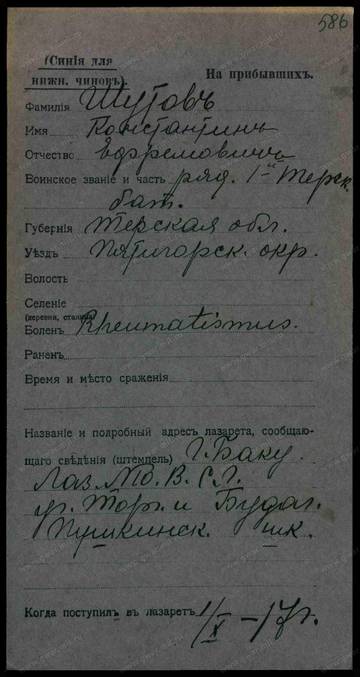 586
(Синія для
нижн. чиновъ).
На прибывшихъ.
Фамилія Шутовъ
Имя Константинъ
Отчество Ефремовичъ
Воинское званіе и часть ряд. 1й Терск.
бат.
Губернія Терская обл.
Уѣздъ Пятигорск. окр.
Волость
Селеніе
(деревня, станица)
Боленъ Rheumatismus.
Раненъ
Время и мѣсто сраженія
Названіе и подробный адресъ лазарета, сообщаю-
щаго свѣдѣнія (штемпель) г. Баку
Лаз. № В. С. Л.
уг. Торг. и Будаг.
Пушкинск. шк.
Когда поступилъ въ лазаретъ 1/X – 17 г.